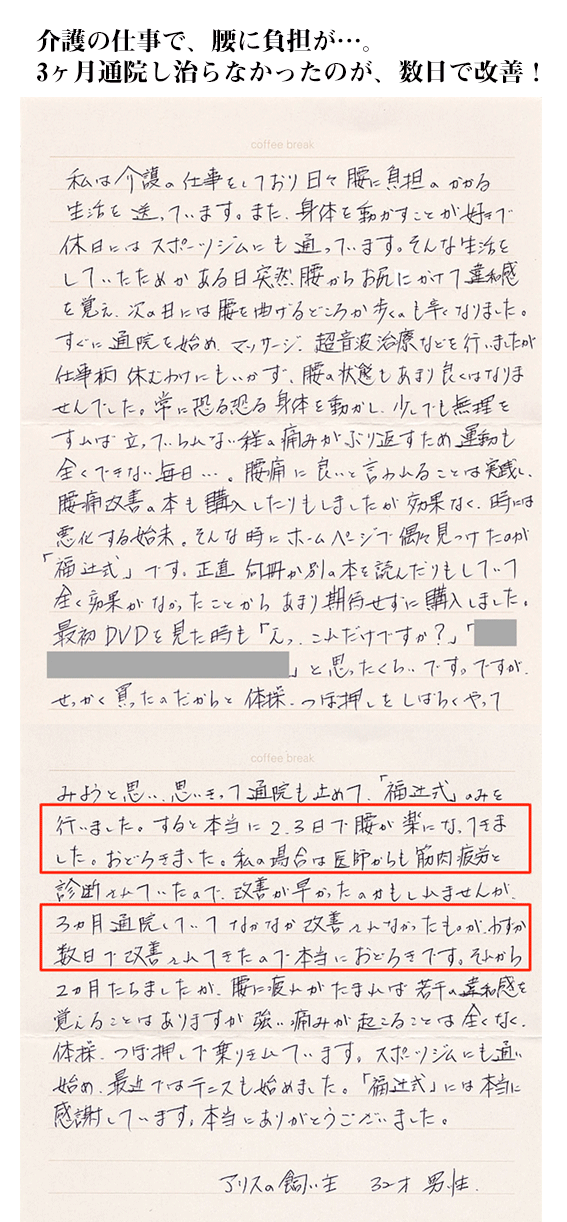 介護の仕事で、腰に負担が…。
3ヶ月通院し治らなかったのが、数日で改善！
coffee break
私は介護の仕事をしており日々腰に負担のかかる
生活を送っています。また、身体を動かすことが好きで
休日にはスポーツジムにも通っています。そんな生活を
していたためかある日突然腰からお尻にかけて違和感
を覚え、次の日には腰を曲げるどころか歩くのも辛くなりました。
すぐに通院を始め、マッサージ、超音波治療などを行いましたが
仕事柄休むわけにもいかず、腰の状態もあまり良くはなりま
せんでした。常に恐る恐る身体を動かし、少しでも無理を
すれば立っていられない程の痛みがぶり返すため運動も
全くできない毎日…。腰痛に良いと言われることは実践し、
腰痛改善の本も購入したりもしましたが効果なく、時には
悪化する始末。そんな時にホームページで偶々見つけたのが
「福辻式」です。正直何冊か別の本を読んだりもしていて
全く効果がなかったことからあまり期待せずに購入しました。
最初DVDを見た時も「えっ、これだけですか？」「
」と思ったくらいです。ですが、
せっかく買ったのだからと体操、つぼ押しをしばらくやって
coffee break
みようと思い、思いきって通院も止めて、「福辻式」のみを
行いました。すると本当に2.3日で腰が楽になってきま
した。おどろきました。私の場合は医師からも筋肉疲労と
診断されていたので、改善が早かったのかもしれませんが、
3ヵ月通院していてなかなか改善されなかったものが、わずか
数日で改善されてきたので本当におどろきです。それから
2ヵ月たちましたが、腰に疲れがたまれば若干の違和感を
覚えることはありますが強い痛みが起こることは全くなく、
体操、つぼ押しで乗りきれています。スポーツジムにも通い
始め、最近ではテニスも始めました。「福辻式」には本当に
感謝しています。本当にありがとうございました。
アリスの飼い主 32才 男性.